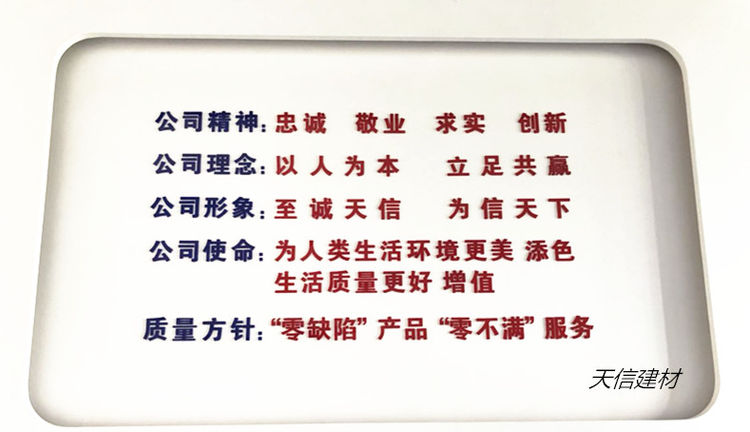 公司精神：忠诚 敬业 求实 创新
公司理念：以人为本 立足共赢
公司形象：至诚天信 为信天下
公司使命：为人类生活环境更美 添色
生活质量更好 增值
质量方针：“零缺陷”产品“零不满”服务
天信建材